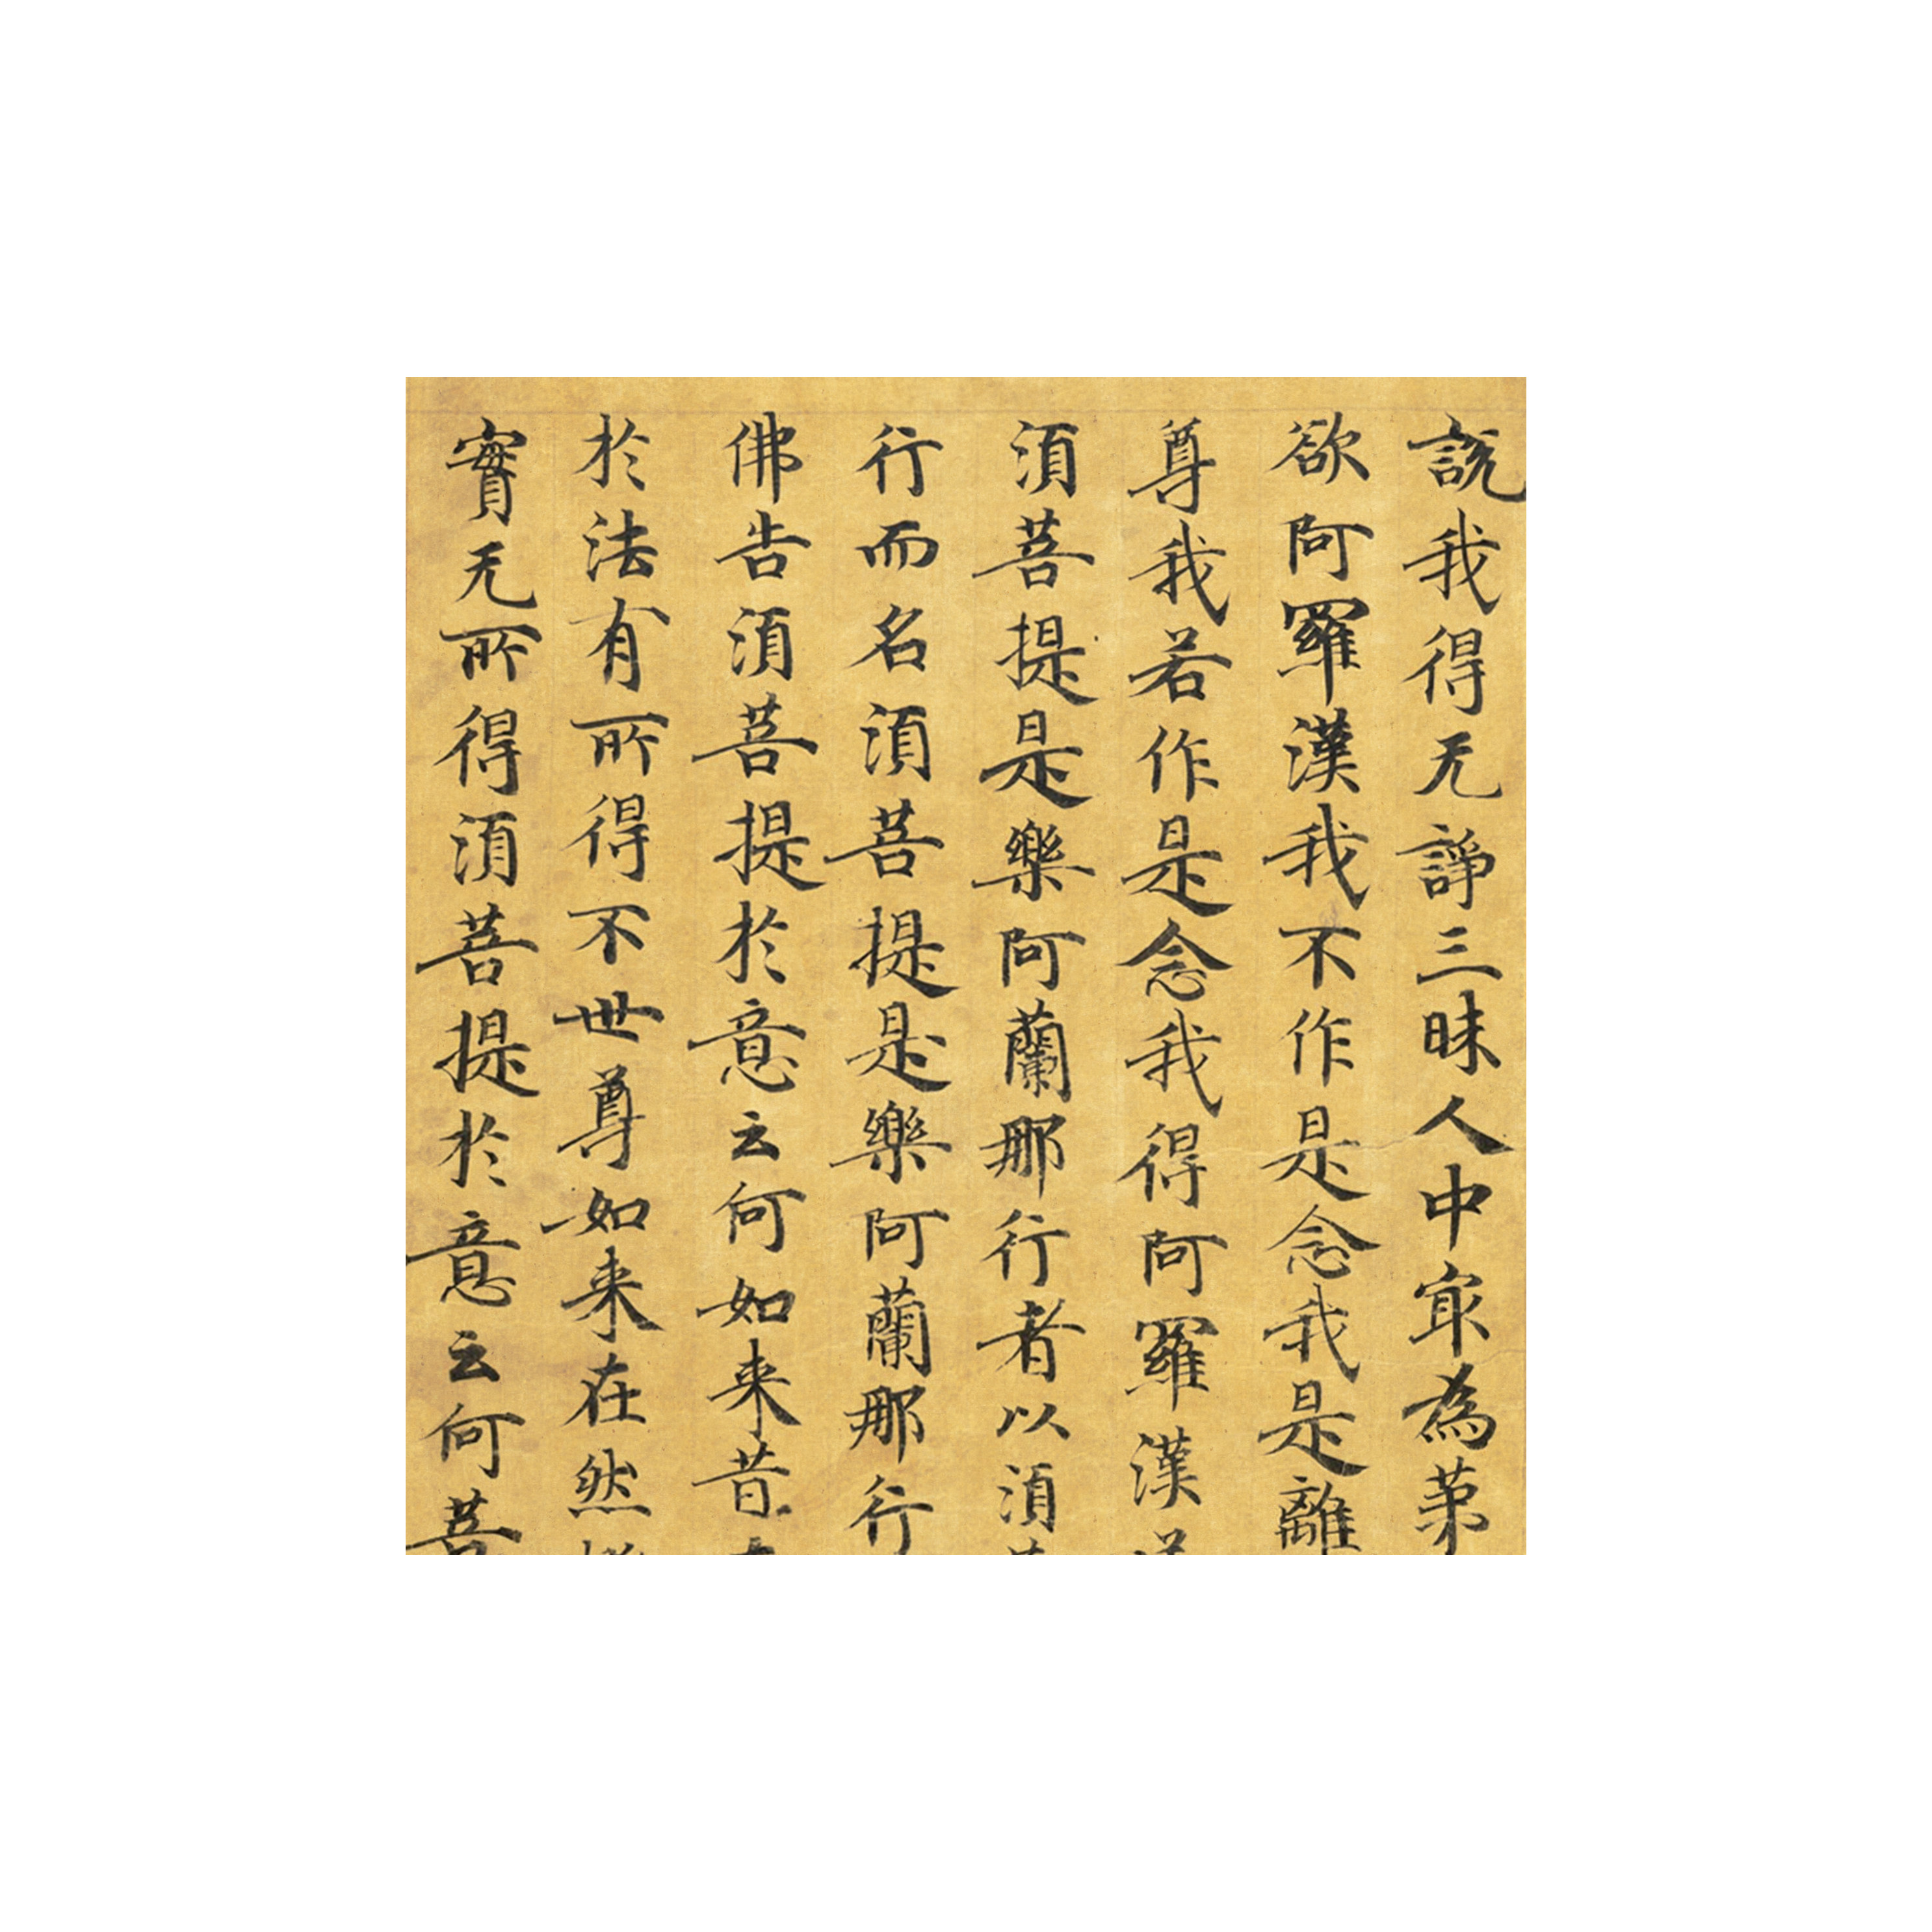 説我得无諍三昧人中㝡為苐
欲阿羅漢我不作是念我是離
尊我若作是念我得阿羅漢
須菩提是樂阿蘭那行者以須
行而名須菩提是樂阿蘭那行
佛告須菩提於意云何如来昔
於法有所得不世尊如来在然
實无所得須菩提於意云何菩